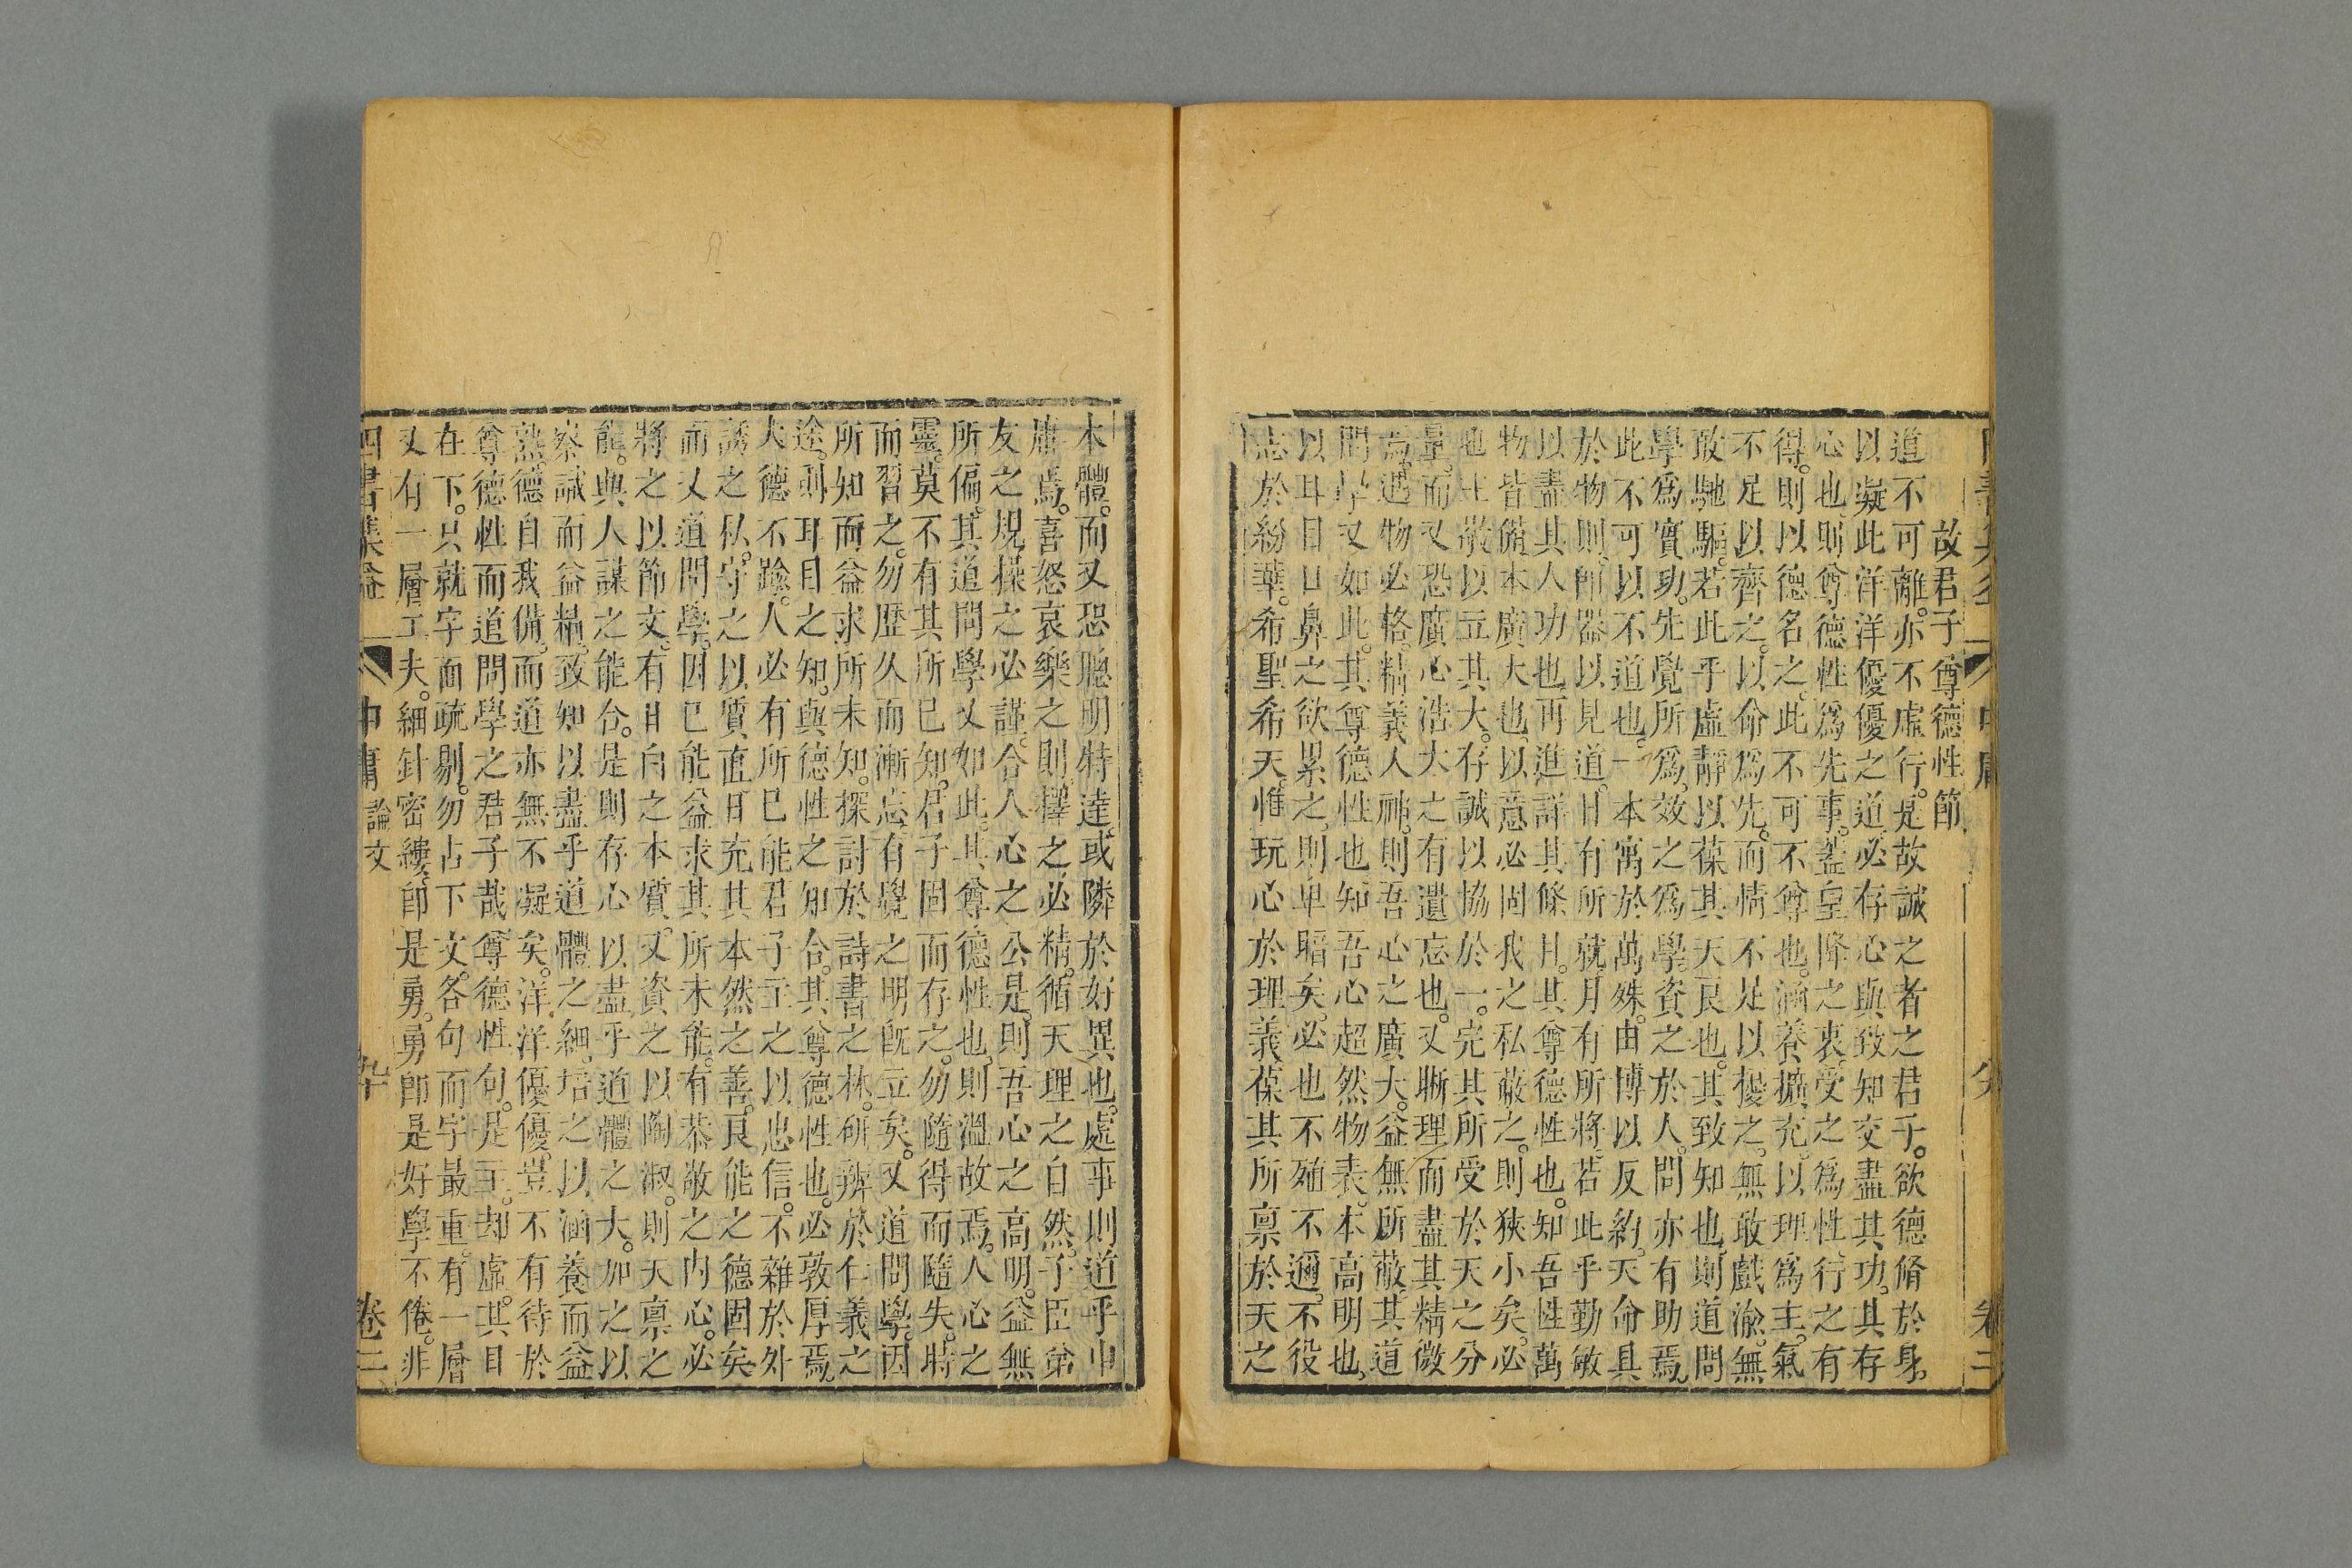 故君子尊德性節
道不可離。亦不虛行。是故誠之者之君子。欲德脩於身。
以凝此洋洋優優之道。必存心與致知交盡其功。其存
心也。則尊德性爲先事。蓋皇降之衷。受之爲性。行之有
得。則以德名之。此不可不尊也。涵養擴充。以理爲主。氣
不足以齊之。以命爲先。而情不足以擾之。無敢戲渝。無
敢馳驅。若此乎虛靜以葆其天良也。其致知也。則道問
學爲實功。先覺所爲。效之爲學。資之於人。問亦有助焉。
此不可以不道也。一本寓於萬殊。由博以反約。天命具
於物則。卽器以見道。日有所就。月有所將。若此乎勤敏
以盡其人功也。再進詳其條目。其尊德性也。知吾性萬
物皆備。本廣大也。以意必固我之私蔽之。則狹小矣。必
也主敬以立其大。存誠以協於一。完其所受於天之分
量。而又恐廣心浩大之有遺忘也。又晰理而盡其精微
焉。遇物必格。精義入神。則吾心之廣大。益無所蔽。其道
問學又如此。其尊德性也。知吾心超然物表。本高明也。
以耳目口鼻之欲累之。則卑暗矣。必也不殖不邇。不役
志於紛華。希聖希天。惟玩心於理義。葆其所稟於天之
本體。而又恐聰明特達。或隣於好異也。處事則道乎中
庸焉。喜怒哀樂之則。擇之必精。循天理之自然。子臣弟
友之規。操之必謹。合人心之公是。則吾心之高明。益無
所偏。其道問學又如此。其尊德性也。則溫故焉。人心之
靈。莫不有其所已知。君子固而存之。勿隨得而隨失。時
而習之。勿歷久而漸忘。有覺之明旣立矣。又道問學。因
所知而益求所未知。探討於詩書之林。研辨於仁義之
途。則耳目之知。與德性之知合。其尊德性也。必敦厚焉。
大德不踰。人必有所已能。君子主之以忠信。不雜於外
誘之私。守之以質直。日充其本然之善。良能之德固矣。
而又道問學。因已能益求其所未能。有恭敬之內心。必
將之以節文。有甘白之本質。又資之以陶淑。則天稟之
能。與人謀之能合。是則存心以盡乎道體之大。加之以
察識而益精。致知以盡乎道體之細。培之以涵養而益
熟。德自我備。而道亦無不凝矣。洋洋優優。豈不有待於
尊德性而道問學之君子哉。尊德性句。是主。却虛。其目
在下。只就字面疏剔。勿占下文。各句而字最重。有一層
又有一層工夫。細針密縷。卽是勇。勇卽是好學不倦。非
四書集益 中庸 論文 卷二